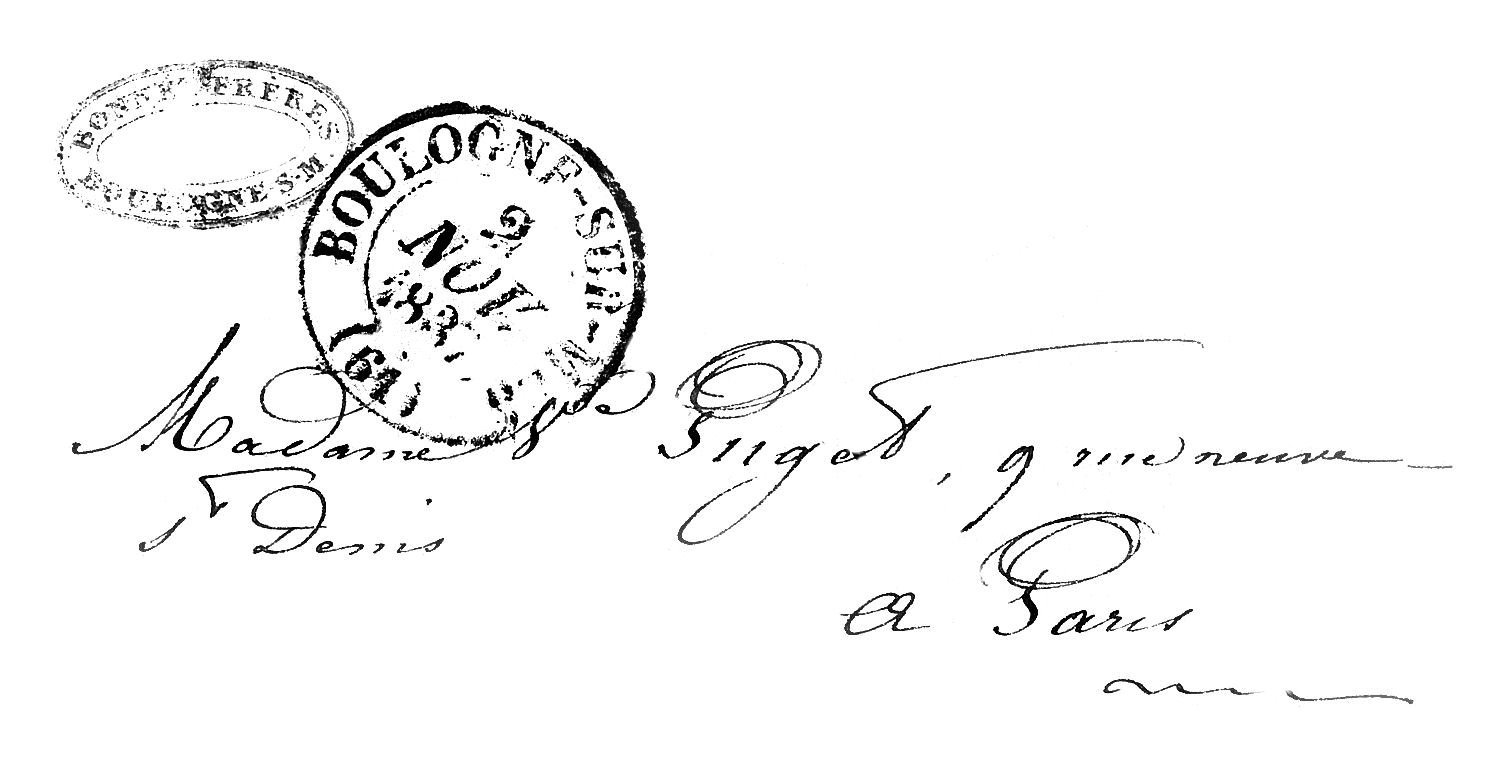 BONNE FRÈRES
BOULOGNE S-M.
BOULOGNE-SUR-MER
2
NOV
(61)
Madame Vve Puget, 9 rue neuve
St Denis
A Paris